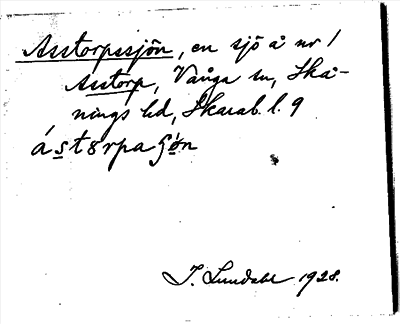 Asstorpssjön, en sjö å nr 1
Asstorp, Vånga sn, Skå-
nings hd, Skarab. l. 9
ástørpaʂön
I. Lundahl 1928.